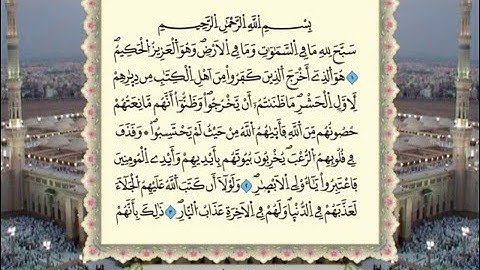 بِسْمِ اللَّهِ الرَّحْمَٰنِ الرَّحِيمِ
سَبَّحَ لِلهِ مَا فِي السَّمَٰوَٰتِ وَمَا فِي الْأَرْضِ وَهُوَ الْعَزِيزُ الْحَكِيمُ
١ هُوَ الَّذِي أَخْرَجَ الَّذِينَ كَفَرُوا مِنْ أَهْلِ الْكِتَٰبِ مِن دِيٰرِهِمْ
لِأَوَّلِ الْحَشْرِ مَا ظَنَنتُمْ أَنْ يَخْرُجُوا وَظَنُّوا أَنَّهُم مَّانِعَتُهُمْ
حُصُونُهُم مِّنَ اللَّهِ فَأَتَىٰهُمُ اللَّهُ مِنْ حَيْثُ لَمْ يَحْتَسِبُوا وَقَذَفَ
فِي قُلُوبِهِمُ الرُّعْبَ يُخْرِبُونَ بُيُوتَهُم بِأَيْدِيهِمْ وَأَيْدِي الْمُومِنِينَ
فَاعْتَبِرُوا يَٰأُولِي الْأَبْصٰرِ ٢ وَلَوْلَا أَن كَتَبَ اللَّهُ عَلَيْهِمُ الْجَلَاءَ
لَعَذَّبَهُمْ فِي الدُّنْيَا وَلَهُمْ فِي الْآخِرَةِ عَذَابُ النَّارِ ٣ ذَٰلِكَ بِأَنَّهُمْ